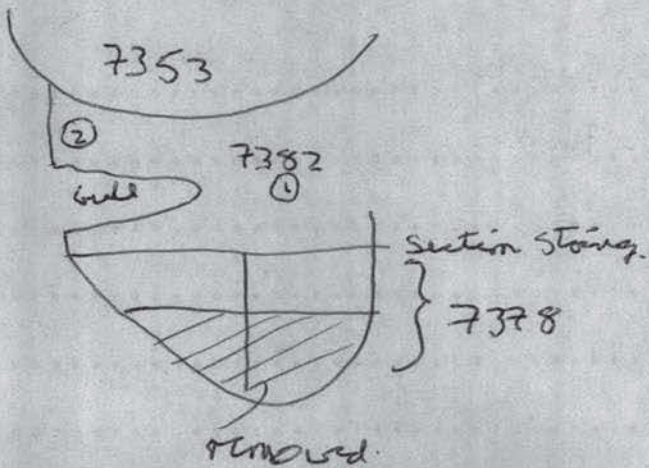 7353
②
7382
①
section string.
7378
removed.